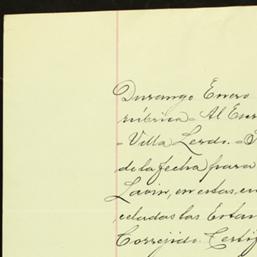 Durango Enero
rúbrica = Al En
- Villa Lerdo. -
de la fecha para
Lavin, en estas, en
celadas las Estam
Correjido. Certif